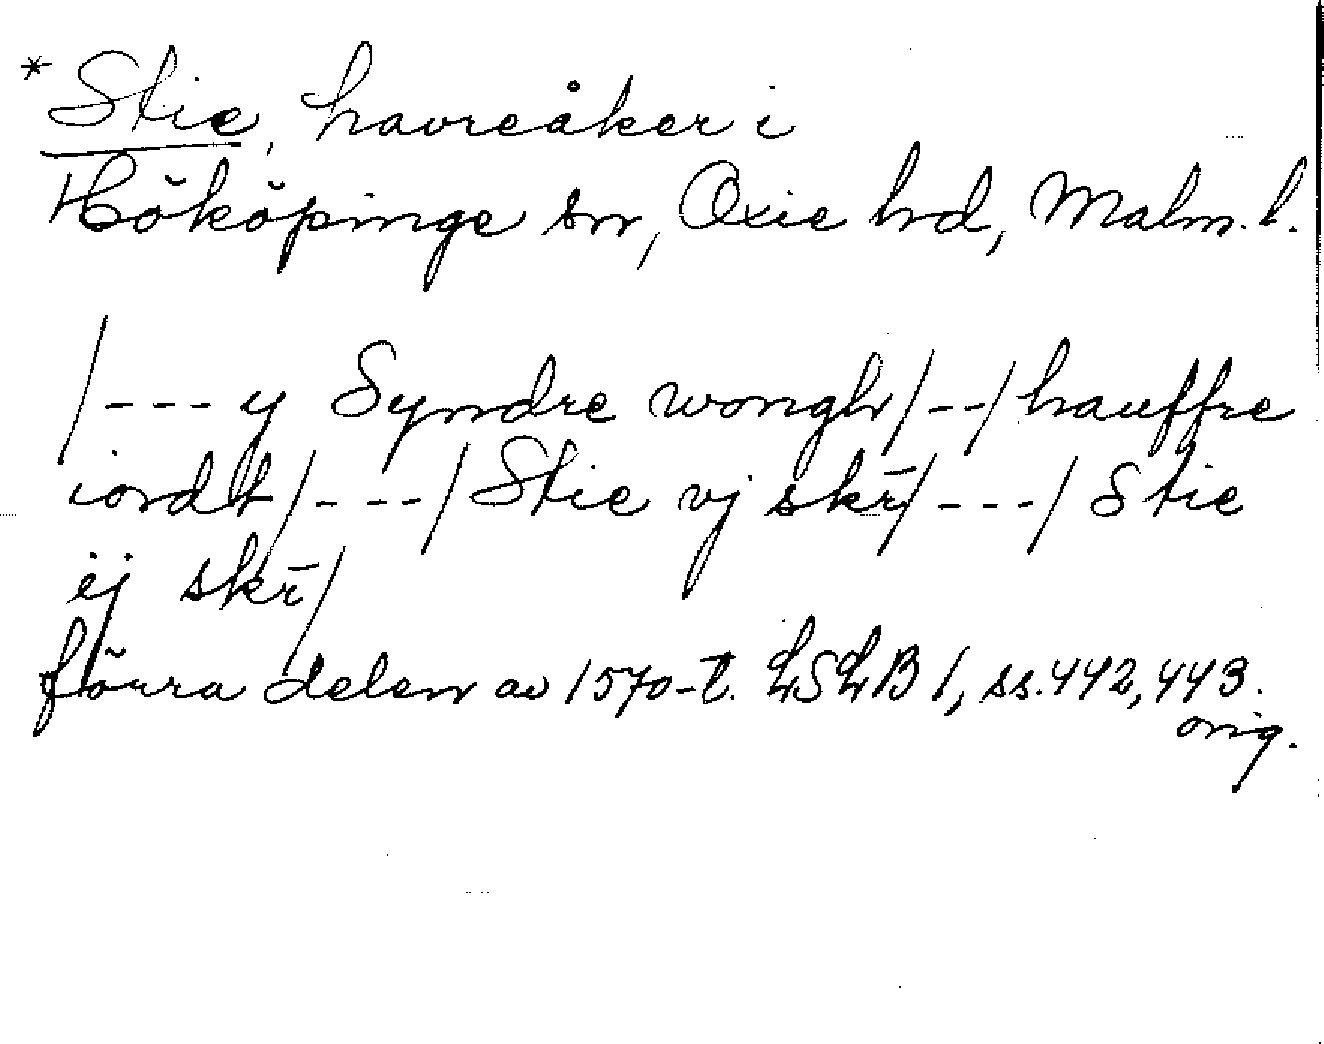 * Stie, havreåker i
Hököpinge sn, Oxie hd, Malm. l.
/---y Syndre wongh/--/hauffre
iordt/---/Stie vj skr̄/---/Stie
ij skr̄/
förra delen av 1570-t. LSLB 1, ss. 442, 443.
orig.